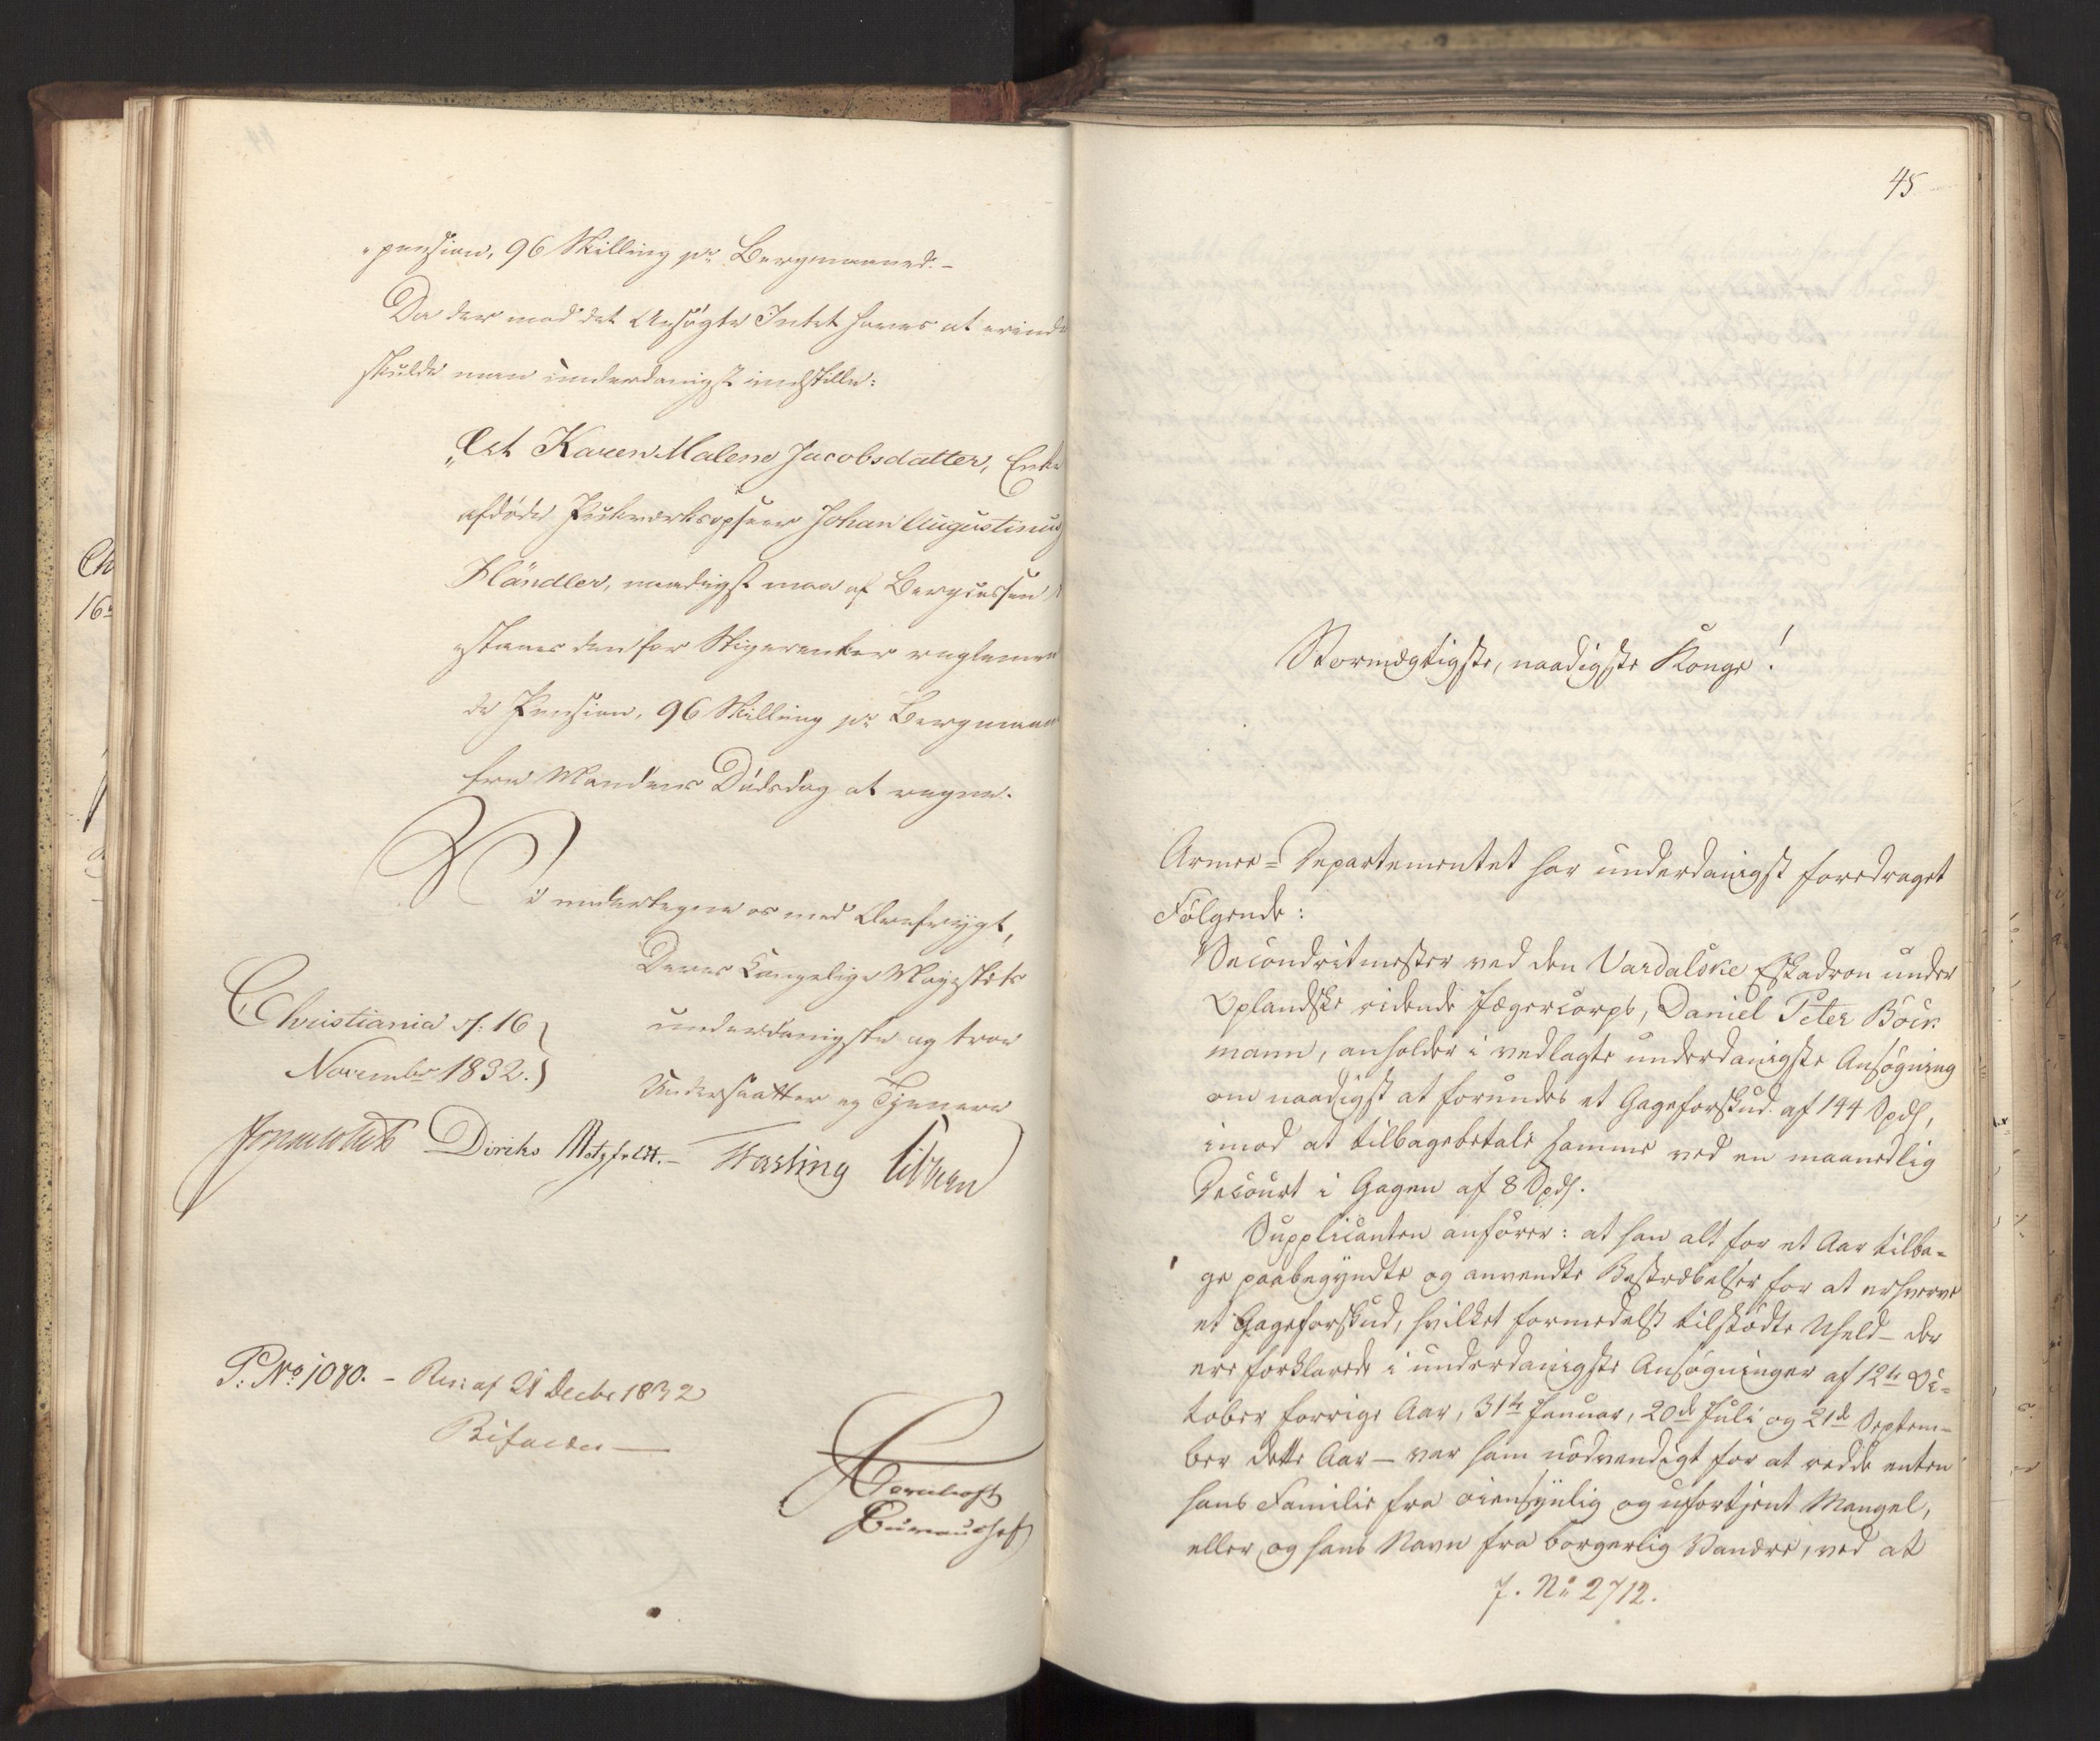 "pension, 96 Skilling pr Bergmaaned. –
Da der mod det Ansøgte Intet haves at erind
skulde man underdanigst indstille:
"At Karen Malene Jacobsdatter, Enke
afdøde Pukværksopseer Johan Augustinus
Händler, naadigst maa af Bergcassen
staaes den for Stigerenker reglemen
de Pension, 96 Skilling pr Bergmaan
fra Mandens Dødsdag at regne.
Vi undertegne os med Ærefrygt,
Deres Kongelige Majestets
underdanigste og troe
Undersaatter og Tjenere
Christiania d: 16
Novembr 1832.
Diriks Motzfeldt. – Fasting Vibhen
P. No 1080. – Res: af 21 Decbr 1832
Bifaldes —
Bureauchef
45
Stormægtigste, naadigste Konge!
Armee-Departementet har underdanigst foredraget
Følgende:
Secondritmester ved den Vardalske Eskadron under
Oplandske ridende Jægercorps, Daniel Peter Böck
mann, anholder i vedlagte underdanigste Ansøgning
om naadigst at forundes et Gageforskud af 144 Spd,
imod at tilbagebetale samme ved en maanedlig
Decourt i Gagen af 8 Spd.
Supplicanten anfører: at han alt for et Aar tilba-
ge paabegyndte og anvendte Bestræbelser for at erhverve
et Gageforskud, hvilket formedelst tilstødte Uheld – der
ere forklarede i underdanigste Ansøgninger af 12te Oc-
tober forrige Aar, 31te Januar, 20de Juli og 21de Septem-
ber dette Aar – var ham nødvendigt for at redde enten
hans Familie fra øiensynlig og ufortjent Mangel,
eller og hans Navn fra borgerlig Vanære, ved at
J. No 2712.